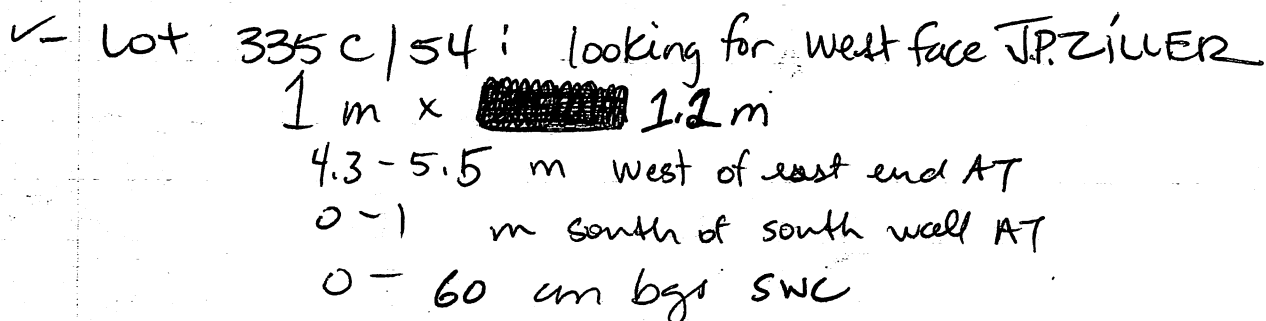 ✓- Lot 335C/54: looking for west face J.P. ZILLER
1 m x 1.2 m
4.3 - 5.5 m west of east end AT
0 - 1 m south of south wall AT
0 - 60 cm bgs SWC